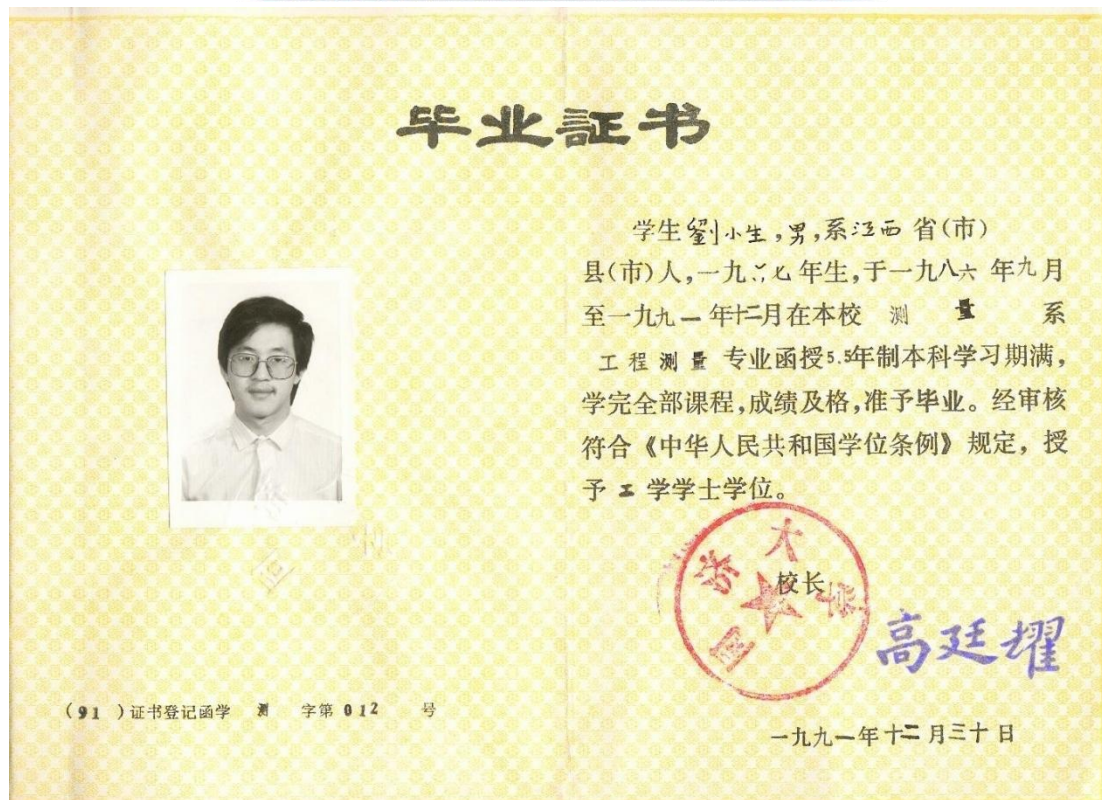 毕业証书
学生劉小生,男,系江西省(市)
县(市)人,一九六七年生,于一九八六年九月
至一九九一年十二月在本校 测 量 系
工程测量专业函授5.5年制本科学习期满,
学完全部课程,成绩及格,准予毕业。经审核
符合《中华人民共和国学位条例》规定,授
予工学学士学位。
同济大学
校长
高廷耀
(91)证书登记函学 测 字第012 号
一九九一年十二月三十日